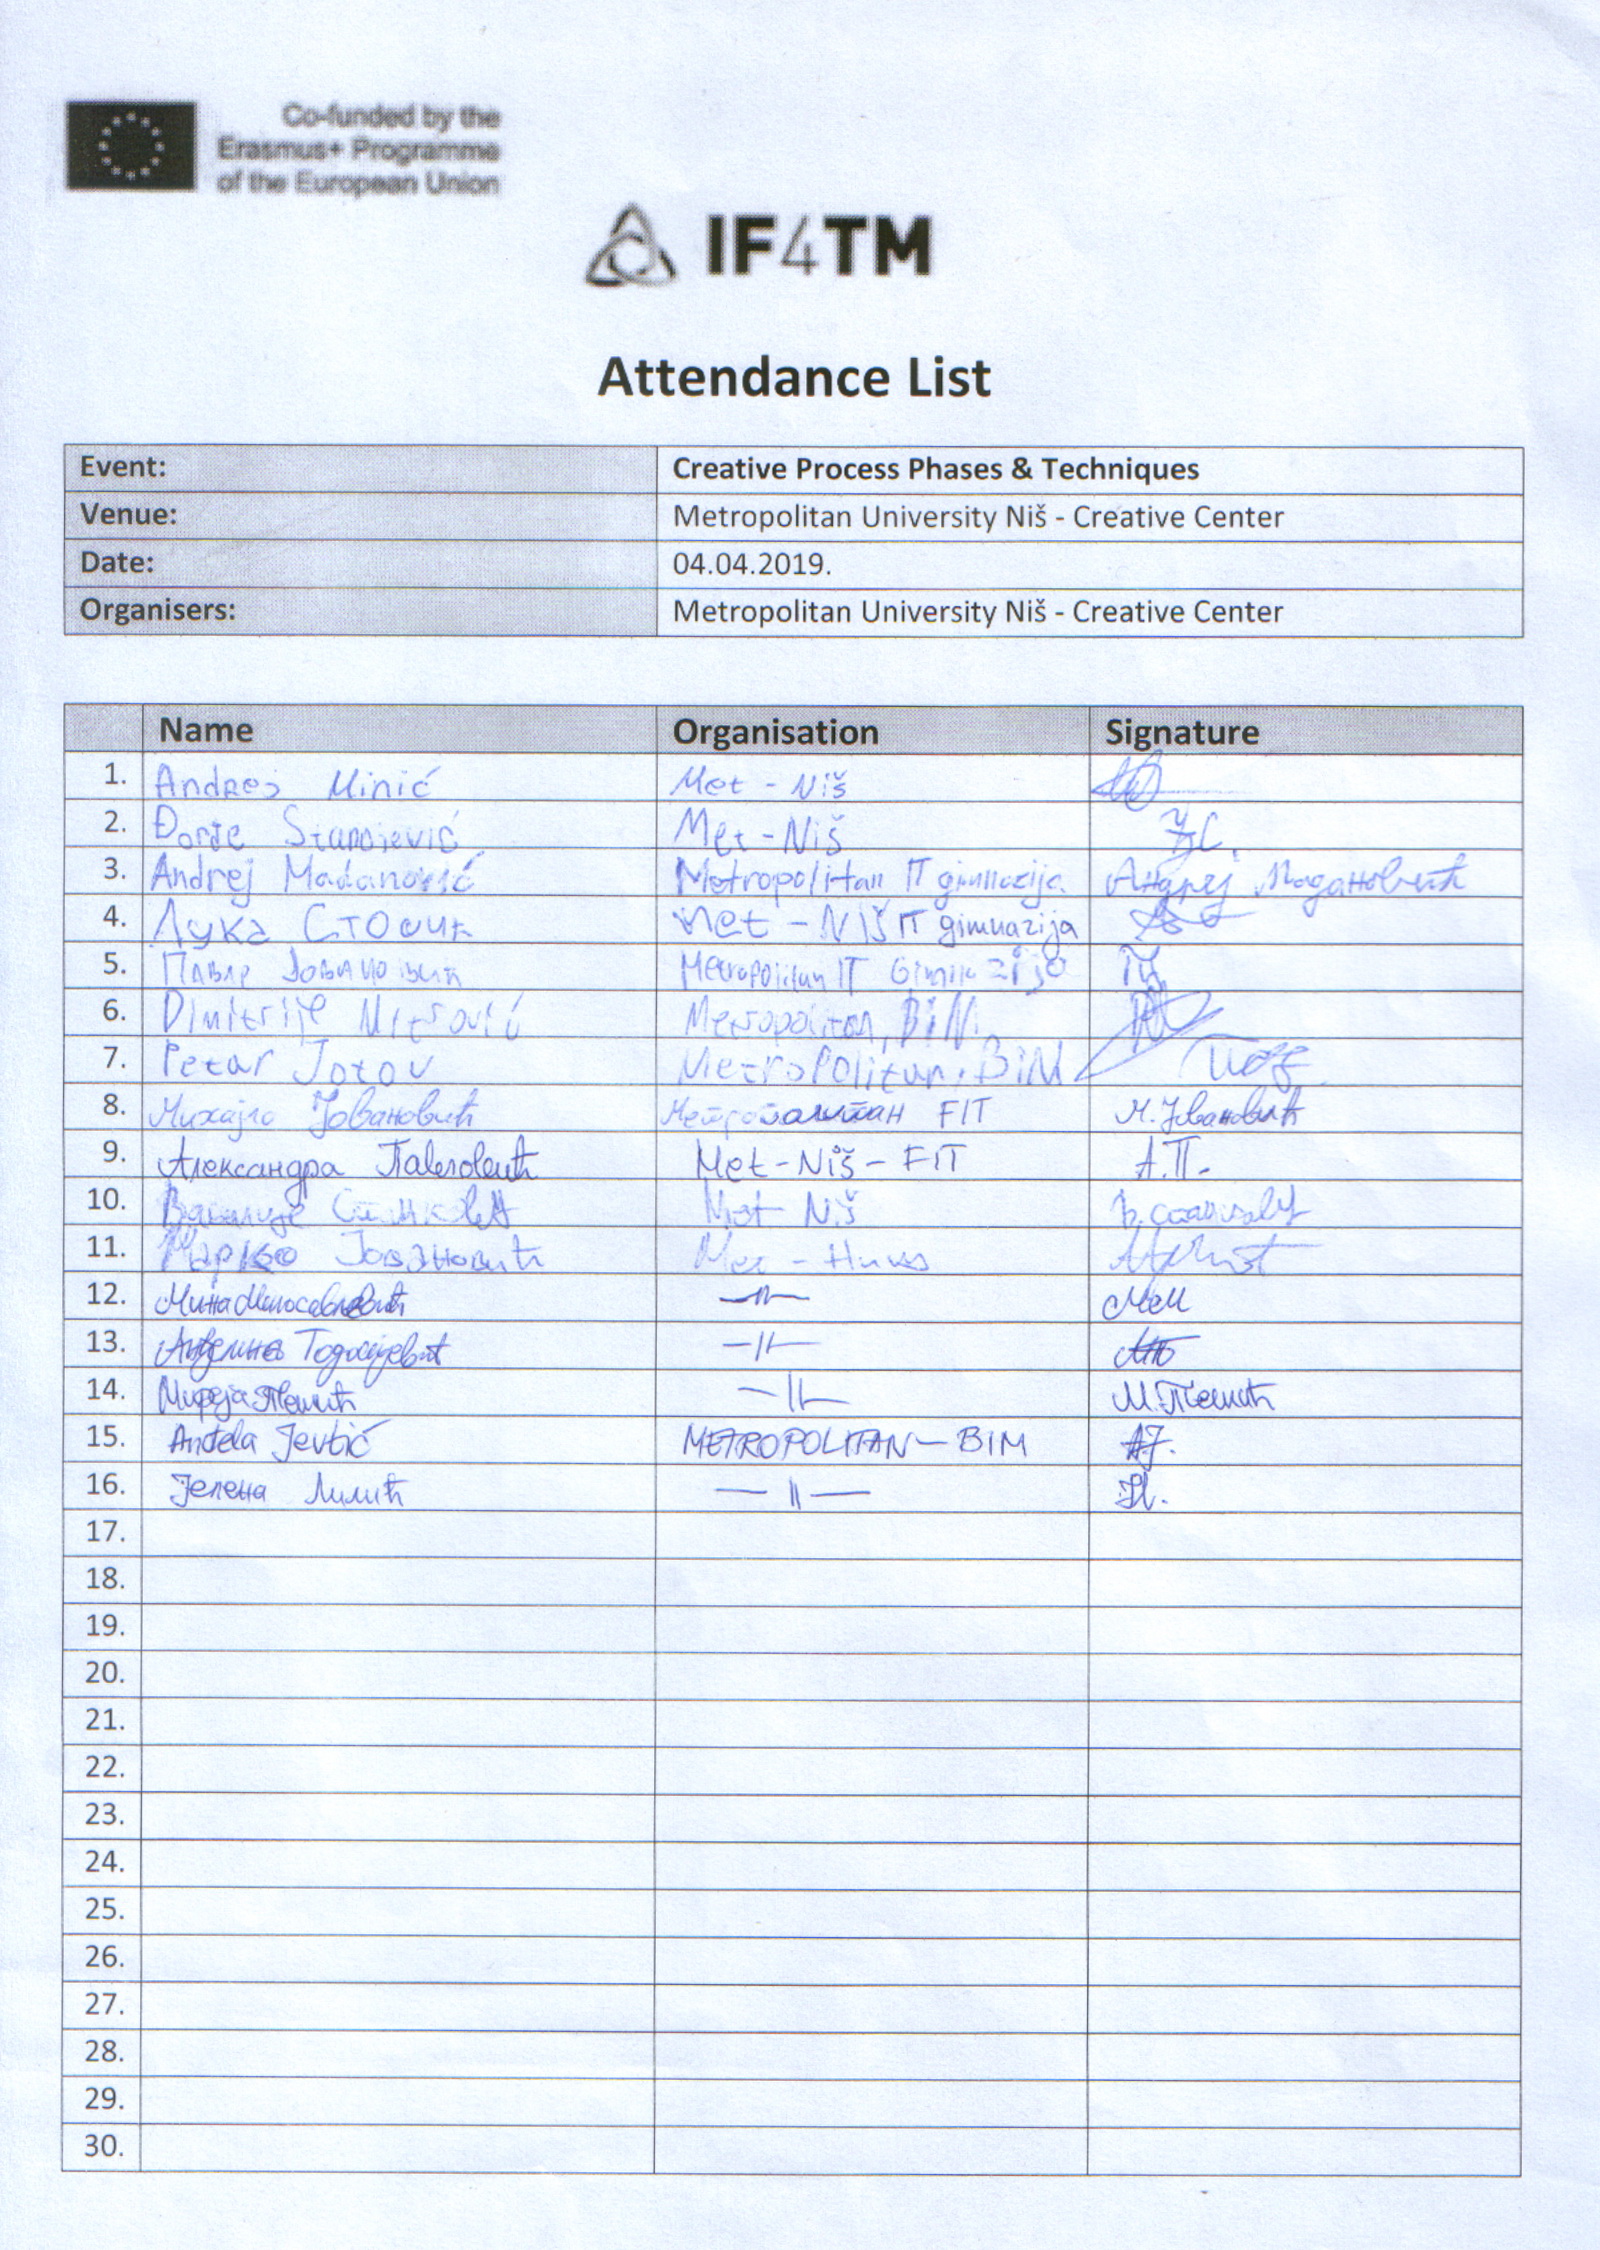 Co-funded by the
Erasmus+ Programme
of the European Union
IF4TM
Attendance List
Event: Creative Process Phases & Techniques
Venue: Metropolitan University Niš - Creative Center
Date: 04.04.2019.
Organisers: Metropolitan University Niš - Creative Center
Name Organisation Signature
1. Andrej Minić Met - Niš
2. Đorđe Stanojević Met - Niš
3. Andrej Madanović Metropolitan IT gimnazija Андреј Мадановић
4. Лука Met - Niš IT gimnazija
5. Павле Јовановић Metropolitan IT Gimnazija
6. Dimitrije Mitrović Metropolitan, BIM
7. Petar Jotov Metropolitan, BIM
8. Михајло Јовановић Метрополитан FIT М. Јовановић
9. Александра Met - Niš - FIT А.П.
10. Met Niš
11. Марко Јовановић Мет - Ниш
12. Мина Милосављевић —||—
13. Анђелина Тодосијевић —||—
14. Мирјана Пешић —||— М. Пешић
15. Anđela Jevtić METROPOLITAN - BIM AJ.
16. Јелена Лилић —||— ЈЛ.
17.
18.
19.
20.
21.
22.
23.
24.
25.
26.
27.
28.
29.
30.